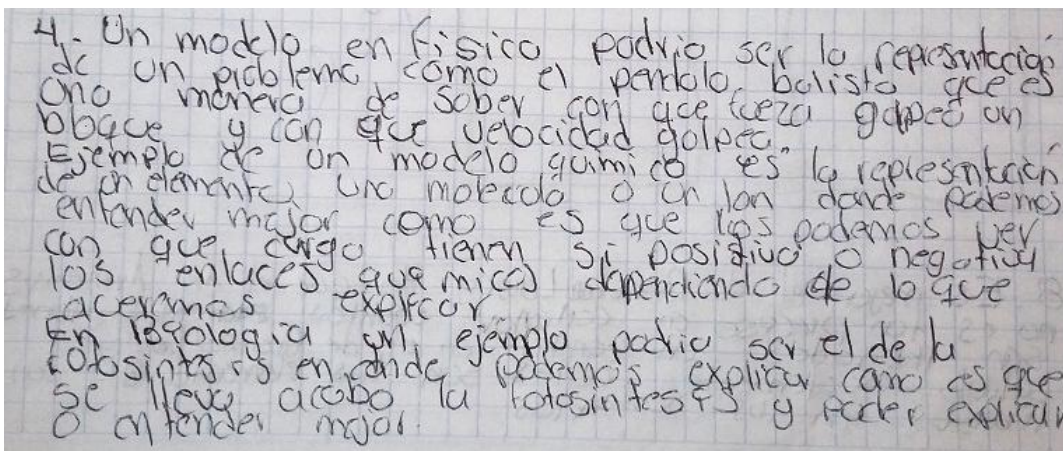 4.- Un modelo en fisica podria ser la representacion
de un problema como el pendolo balisto que es
Una manera de saber con que fuerza golpeo un
bloque y con que velocidad golpea.
Ejemplo de un modelo quimico es la representacion
de un elemento, una molecula o un Ion donde podemos
entender major como es que los podemos ver
con que cargo tienen si positivo o negativa
los enlaces quemicos dependiendo de lo que
queramos explicar.
En Biologia un ejemplo podria ser el de la
fotosintesis en donde podemos explicar como es que
se lleva acabo la fotosintesis y poder explicar
o entender major.